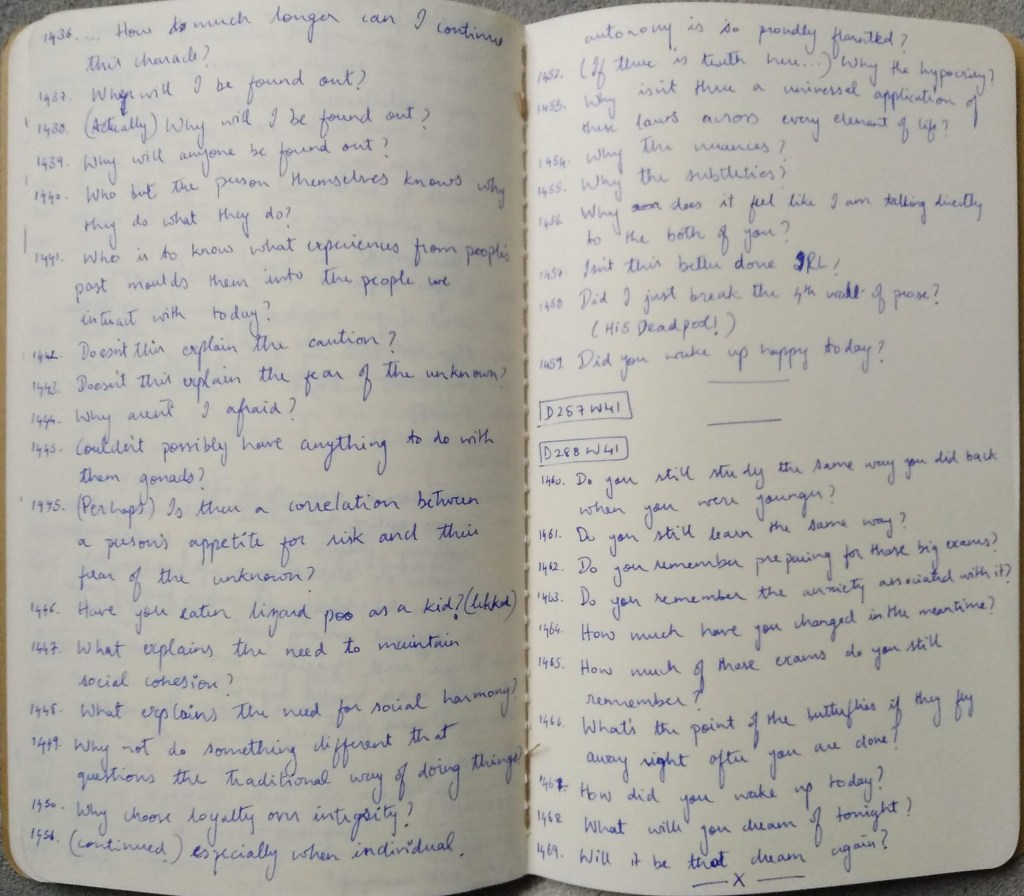 1436. ... How much longer can I continue
this charade?
1437. When will I be found out?
1438. (Actually) Why will I be found out?
1439. Why will anyone be found out?
1440. Who but the person themselves knows why
they do what they do?
1441. Who is to know what experiences from people's
past moulds them into the people we
interact with today?
1442. Doesn't this explain the caution?
1443. Doesn't this explain the fear of the unknown?
1444. Why aren't I afraid?
1445. Couldn't possibly have anything to do with
them gonads?
1445. (Perhaps) Is there a correlation between
a person's appetite for risk and their
fear of the unknown?
1446. Have you eaten lizard poo as a kid?
1447. What explains the need to maintain
social cohesion?
1448. What explains the need for social harmony?
1449. Why not do something different that
questions the traditional way of doing things?
1450. Why choose loyalty over integrity?
(continued.) especially when individual
autonomy is so proudly flaunted?
1452. (If there is truth here...) Why the hypocrisy?
1453. Why isn't there a universal application of
these laws across every element of life?
1454. Why the nuances?
1455. Why the subtleties?
1456. Why does it feel like I am talking directly
to the both of you?
1457. Isn't this better done IRL!
1458 Did I just break the 4th wall of prose?
(Hi5 Deadpool!)
1459. Did you wake up happy today?
D287W41
D288W41
1460. Do you still study the same way you did back
when you were younger?
1461. Do you still learn the same way?
1462. Do you remember preparing for those big exams?
1463. Do you remember the anxiety associated with it?
1464. How much have you changed in the meantime?
1465. How much of those exams do you still
remember?
1466. What's the point of the butterflies if they fly
away right after you are done?
1467. How did you wake up today?
1468 What will you dream of tonight?
1469. Will it be that dream again?
X